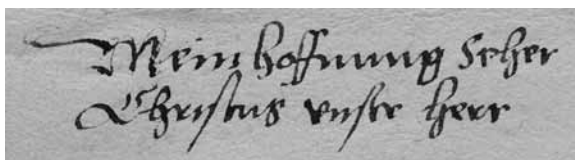 Mein hoffnung Scher
Christus vnser herr